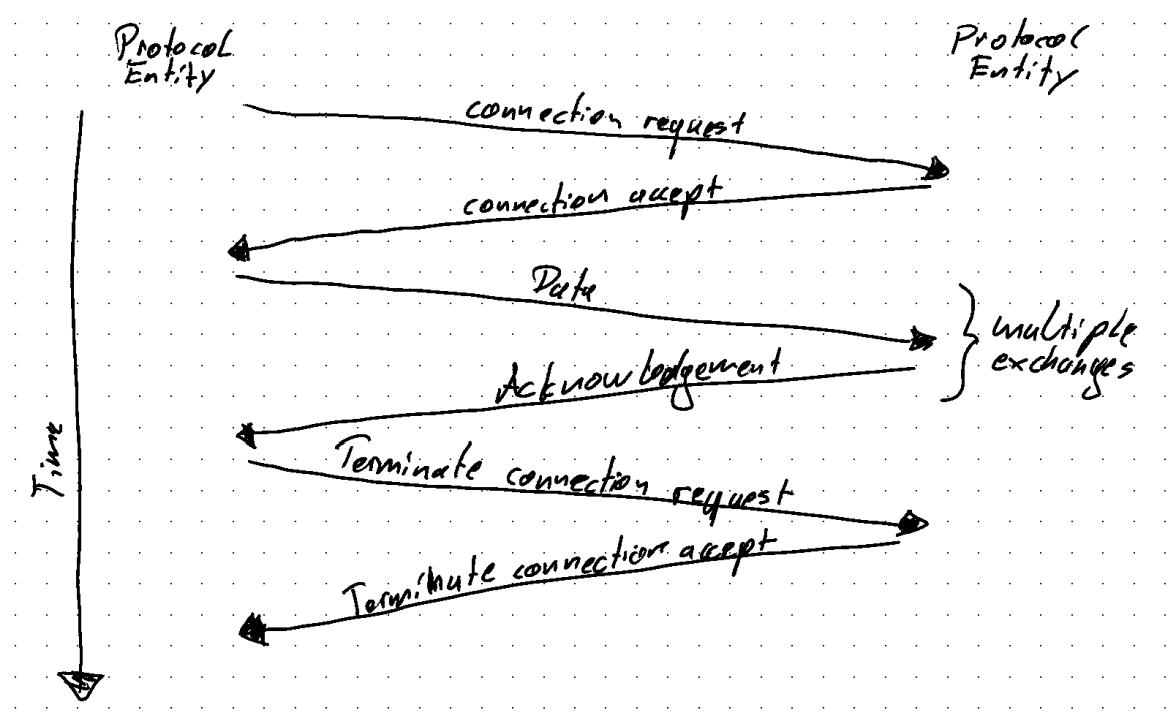 Protocol
Entity
Protocol
Entity
connection request
connection accept
Data
multiple
exchanges
Acknowledgement
Time
Terminate connection request
Terminate connection accept